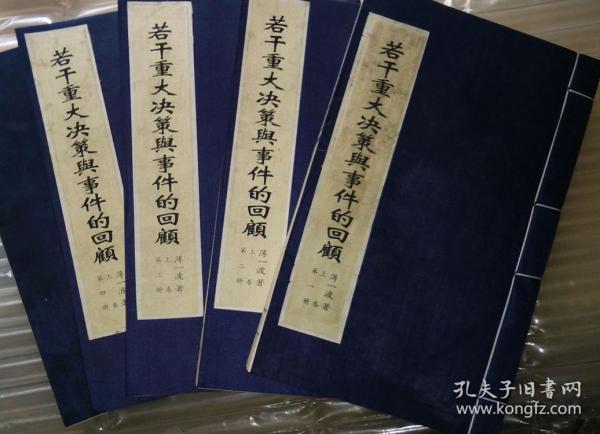 若干重大决策與事件的回顧
薄一波著
上卷
第四册
若干重大决策與事件的回顧
薄一波著
上卷
第三册
若干重大决策與事件的回顧
薄一波著
上卷
第二册
若干重大决策與事件的回顧
薄一波著
上卷
第一册
孔夫子旧书网
www.kongfz.com